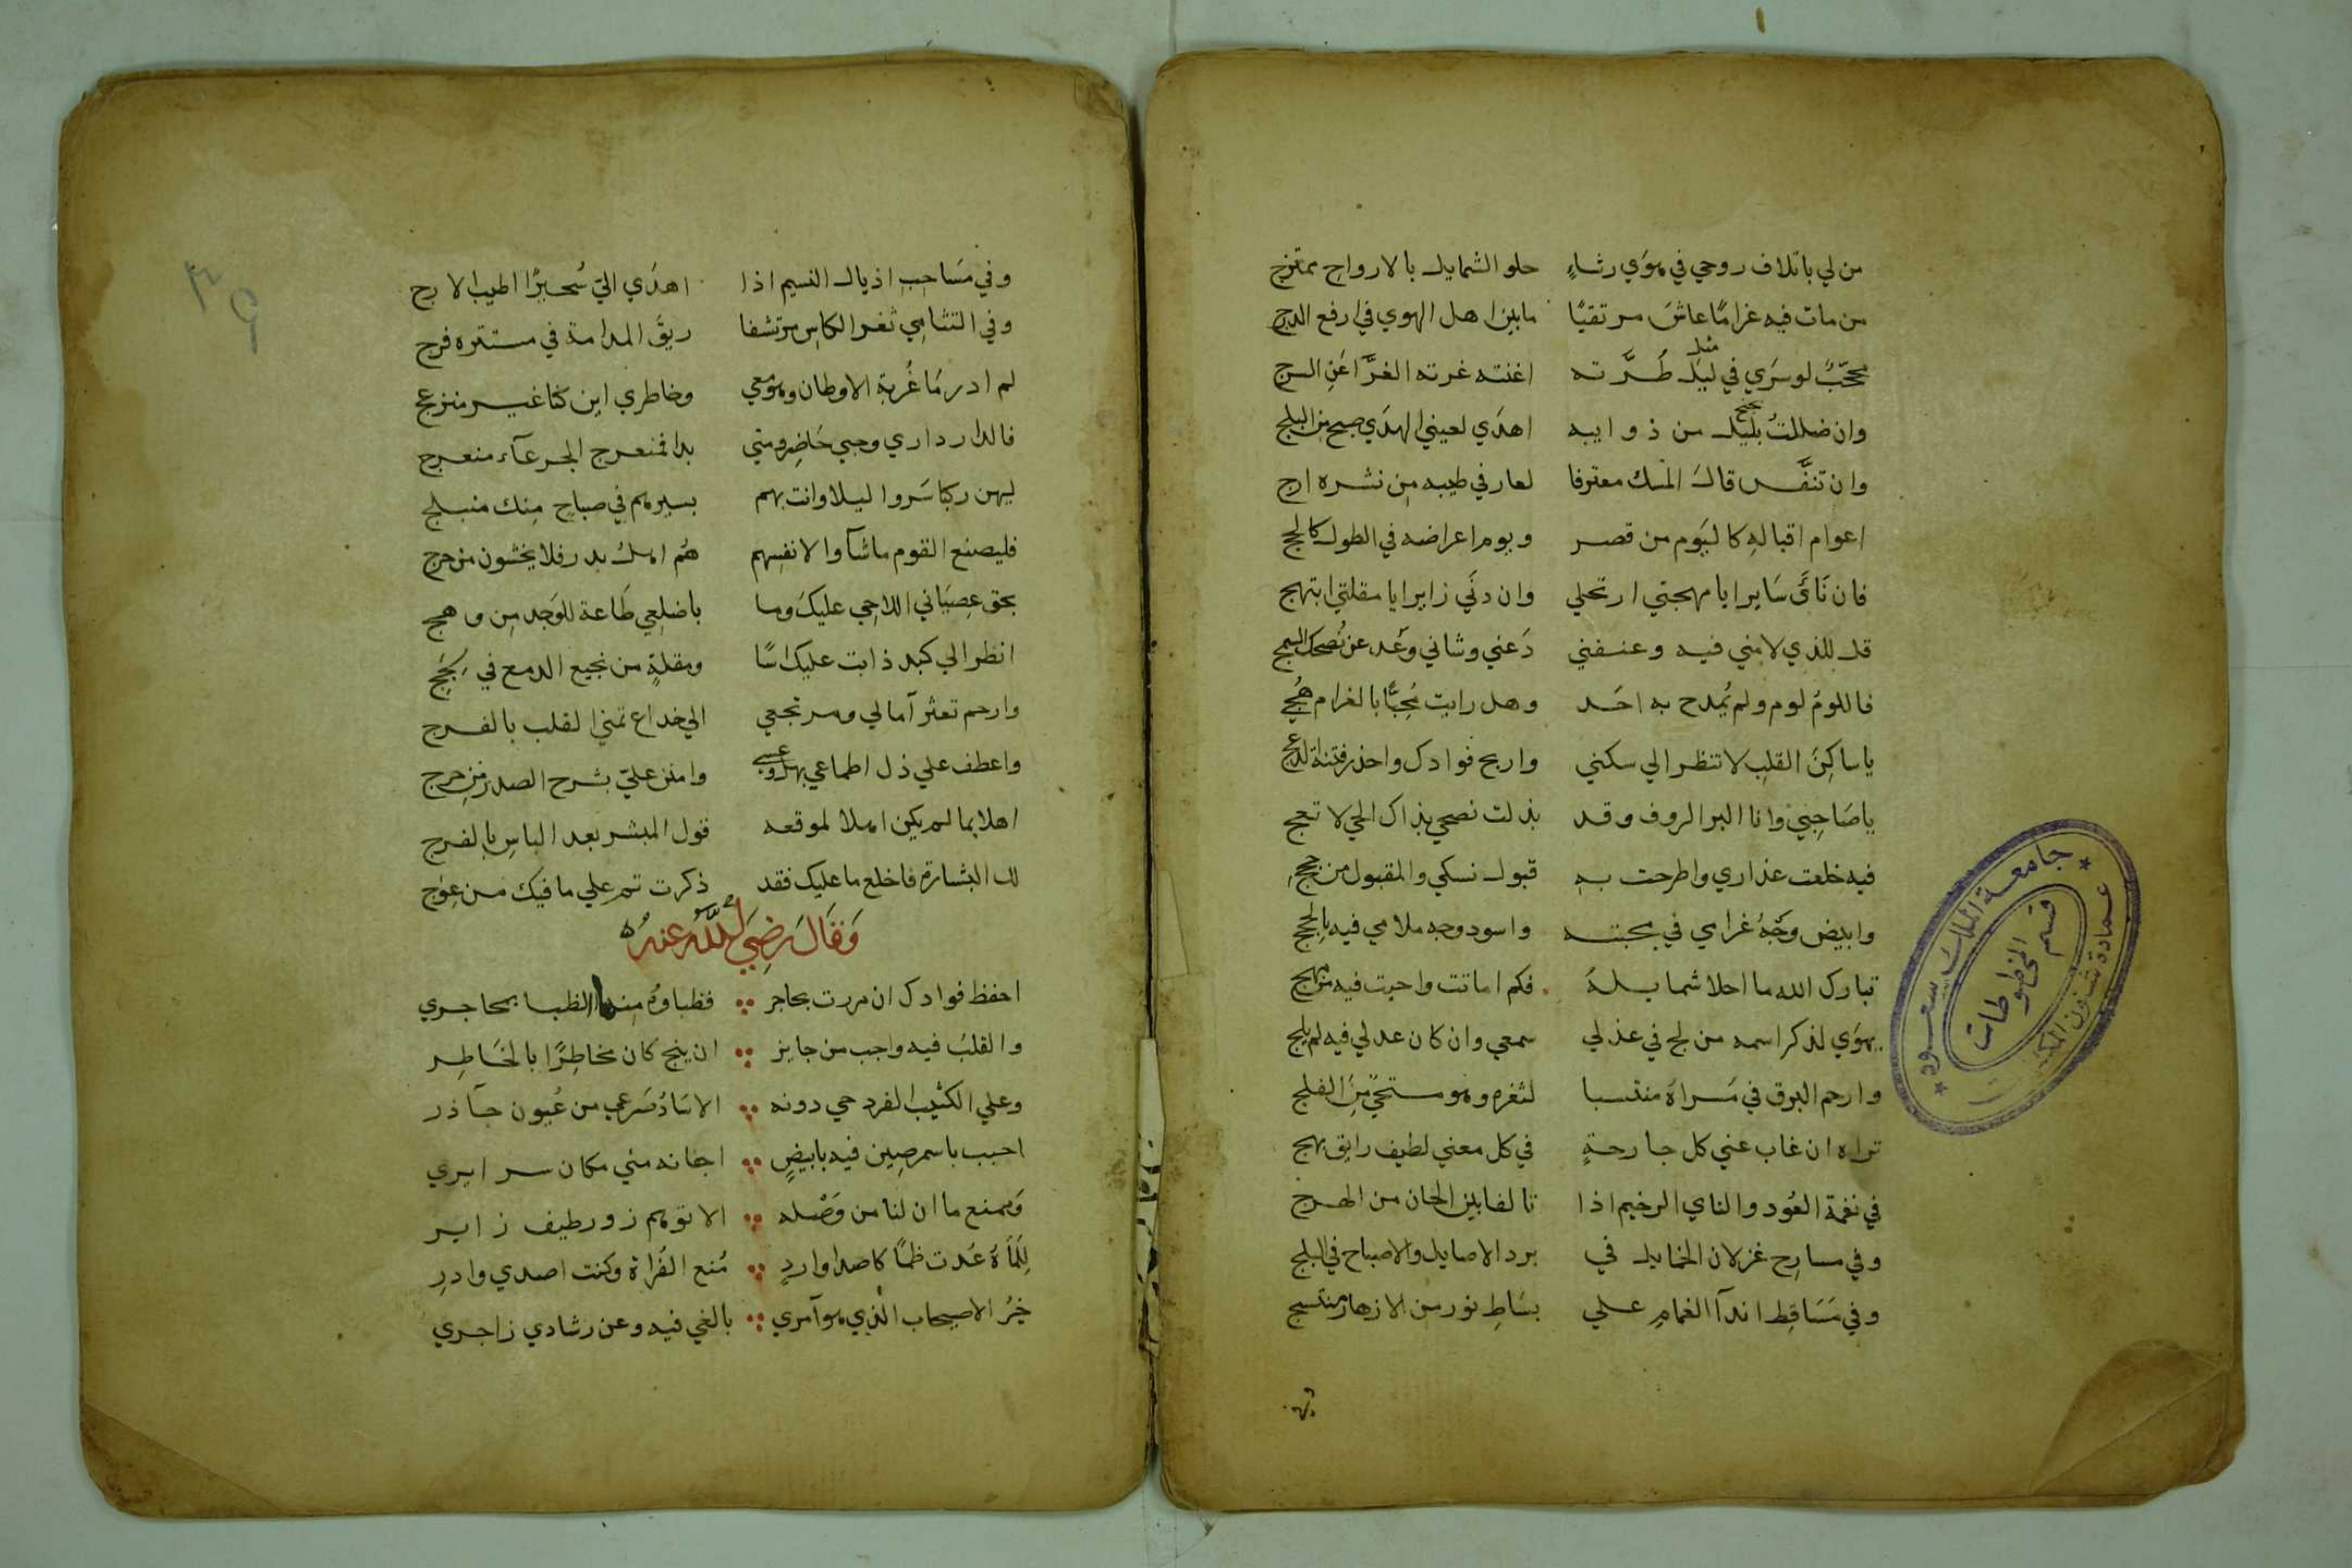 من لي باتلاف روحي في هوي رشاء حلو الشمايل بالارواح ممتزج
من مات فيه غرامًا عاش مرتقيًا مابين اهل الهوي في ارفع الدرج
محجّب لو سري في ليل مثل طرّته اغنته غرته الغرّا عن السرج
وان ضللت بليل من ذوايبه اهدي لعيني الهدي صبح من البلج
وان تنفّس قال المسك معترفا لعارفي طيبه من نشره ارج
اعوام اقباله كاليوم من قصر ويوم اعراضه في الطول كالحجج
فان نائ سايرا يا مهجتي ارتحلي وان دني زايرا يا مقلتي ابتهج
قل للذي لامني فيه وعنفني دعني وشاني وعد عن نصحك السمج
فاللوم لوم ولم يُمدح به احد وهل رايت مُحبًّا بالغرام هُجي
يا ساكن القلب لا تنظر الي سكني واربح فوادك واحذر فتنة الدعج
يا صاحبي وانا البر الروف وقد بذلت نصحي بذاك الحي لا تعج
فيه خلعت عذاري واطرحت به قبول نسكي والمقبول من حججي
وابيض وجه غرامي في محبته واسود وجه ملامي فيه بالحجج
تبارك الله ما احلا شمايله فكم اماتت واحيت فيه من مهج
يهوي لذكر اسمه من لج في عذلي سمعي وان كان عدلي فيه لم يلج
وارحم البرق في مسراه منتسبا لثغره وهو مستحيّ من الفلج
تراه ان غاب عني كل جارحة في كل معني لطيف رايق بهج
في نغمة العُود والناي الرخيم اذا تالفا بين الحان من الهرج
وفي مسارح غزلان الخمايل في برد الاصايل والاصباح في البلج
وفي مساقط اندآ الغمام علي بساط نور من الازهار منتسج
وفي
وفي مساحب اذيال النسيم اذا اهدي اليّ سُحيرًا اطيب الارج
وفي التثامي ثغر الكاس مرتشفا ريق المدامة في مستنزه فرج
لم ادر ما غُربة الاوطان وهو معي وخاطري اين كنا غير منزعج
فالدار داري وحبي حاضر ومتي بدا فمنعرج الجرعآء منعرج
ليهن ركبا سروا ليلا وانت بهم بسيرهم في صباح منك منبلج
فليصنع القوم ماشآوا لانفسهم هُم اهل بدر فلا يخشون من حرج
بحق عصياني اللاحي عليك وما باضلعي طاعة للوجد من وهج
انظر الي كبد ذابت عليك اسًا ومقلة من نجيع الدمع في لجج
وارحم تعثر آمالي ومرتجعي الي خداع تمني القلب بالفرج
واعطف علي ذل اطماعي بهل وعسي وامنن عليّ بشرح الصدر من حرج
اهلا بما لم يكن اهلا لموقعه قول المبشر بعد الياس بالفرج
لك البشارة فاخلع ما عليك فقد ذكرت ثم علي ما فيك من عوج
وَقَالَ رَضِيَ اللَّهُ عَنهُ
احفظ فوادك ان مررت بحاجر فظباوه منها الظبا بمحاجري
والقلب فيه واجب من جايز ان ينج كان مخاطرًا بالخاطر
وعلي الكثيب الفرد حي دونه الاساد صرعي من عُيون جآذر
احبب باسمر صين فيه بابيض اجفانه مني مكان سرايري
وممنع ما ان لنا من وصله الا توهم زور طيف زاير
للماه عُدت ظمًا كاصدا وارد مُنع الفُراة وكنت اصدي وادر
خيرُ الاصيحاب الذي هو آمري بالغي فيه وعن رشادي زاجري
٣٩
جامعة الملك سعود
قسم المخطوطات
عمادة شؤون المكتبات